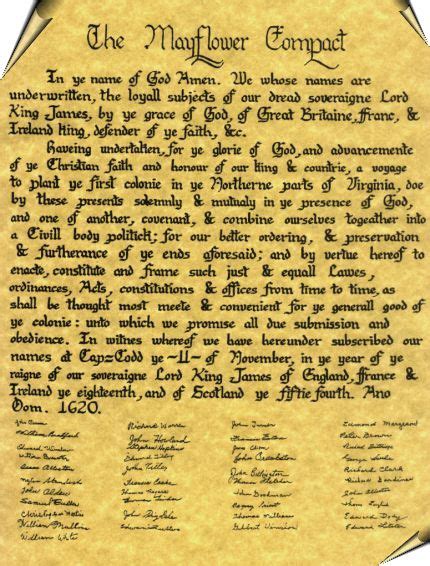 The Mayflower Compact
In ye name of God Amen. We whose names are
underwritten, the loyall subjects of our dread soveraigne Lord
King James, by ye grace of God, of Great Britaine, ffranc, &
Ireland king, defender of ye faith, &c.
Haveing undertaken, for ye glorie of God, and advancemente
of ye Christian faith and honour of our king & countrie, a voyage
to plant ye first colonie in ye Northerne parts of Virginia, doe
by these presents solemnly & mutualy in ye presence of God,
and one of another, covenant, & combine ourselves togeather into
a Civill body politick; for our better ordering, & preservation
& furtherance of ye ends aforesaid; and by vertue hereof to
enacte, constitute and frame such just & equall Lawes,
ordinances, Acts, constitutions & offices from time to time, as
shall be thought most meete & convenient for ye generall good of
ye colonie: unto which we promise all due submission and
obedience. In witnes whereof we have hereunder subscribed our
names at Cap=Codd ye ~11~ of November, in ye year of ye
raigne of our soveraigne Lord King James of England, ffrance &
Ireland ye eighteenth, and of Scotland ye fiftie fourth. Ano
Dom. 1620.
Richard Warren John Turner
William Bradford John Howland Peter Browne
Edward Winslow Stephen Hopkins
Isaac Allerton John Tilley
Richard Clark
John Alden
Samuel Fuller
John Allerton
William Mullins Edward Doty
William White